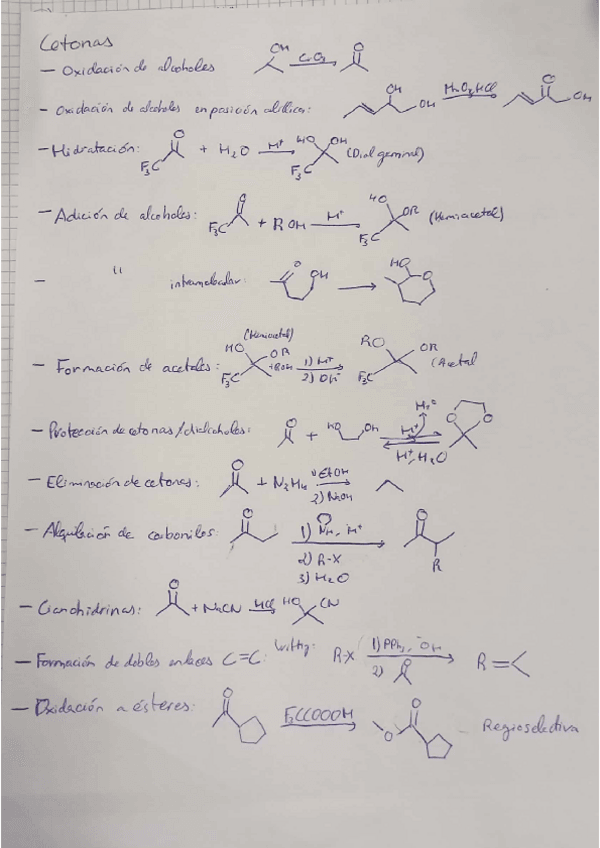 Cetonas
— Oxidación de alcoholes OH CrO3 O
— Oxidación de alcoholes en posición alílica: OH OH MnO2, HCl O OH
— Hidratación: O F3C + H2O H+ HO OH F3C (Diol geminal)
— Adición de alcoholes: O F3C + ROH H+ HO OR F3C (Hemiacetal)
— " intramolecular: O OH HO O
— Formación de acetales: (Hemiacetal) HO OR F3C +ROH 1) H+ 2) OH- RO OR F3C (Acetal
— Protección de cetonas/dialcoholes: O + HO OH H+ H2O H+, H2O O O
— Eliminación de cetonas: O + N2H4 1) EtOH 2) NaOH
— Alquilación de carbonilos: O 1) NH, H+ 2) R-X 3) H2O O R
— Cianohidrinas: O + NaCN HCl HO CN
— Formación de dobles enlaces C=C: Wittig: R-X 1) PPh3, -OH 2) O R=
— Oxidación a ésteres: O F3CCOOOH O O - Regioselectiva